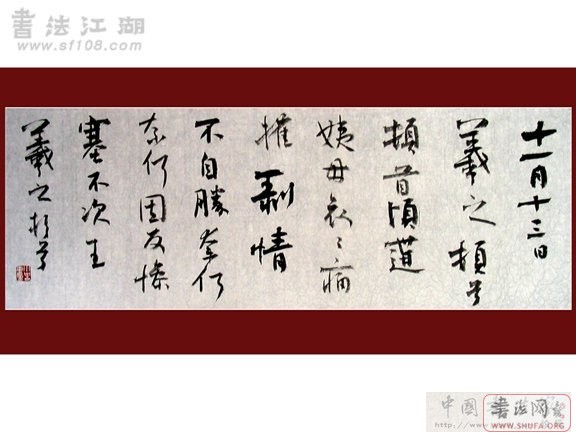 書法江湖
www.sf108.com
十一月十三日
羲之頓首
頓首頃遘
姨母哀〻痛
摧剥情
不自勝奈何
奈何因反慘
塞不次王
羲之頓首
中國
書法网
http://www.
WWW.SHUFA.ORG